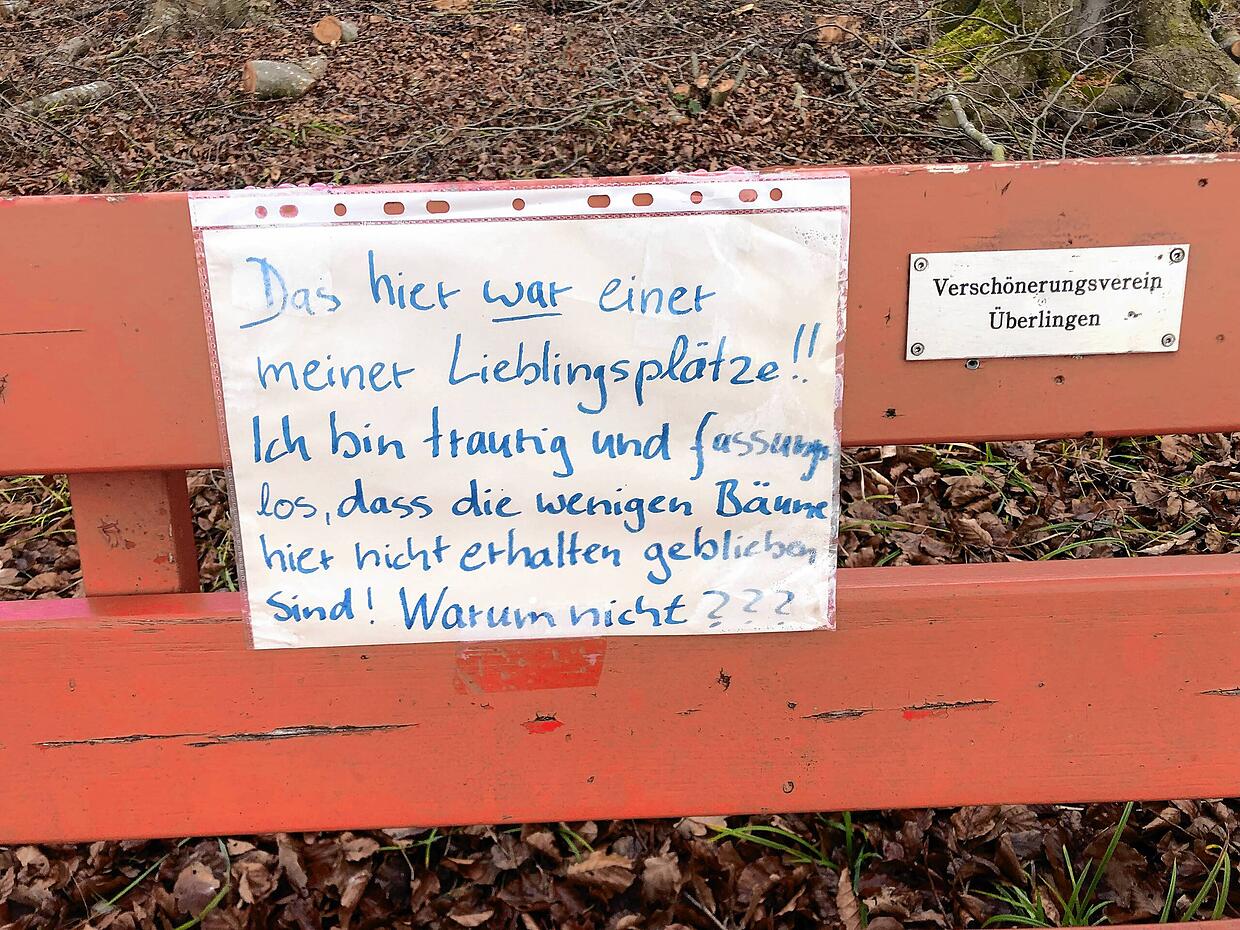 Das hier war einer
meiner Lieblingsplätze!!
Ich bin traurig und fassungs
los, dass die wenigen Bäume
hier nicht erhalten geblieben
sind! Warum nicht ???
Verschönerungsverein
Überlingen